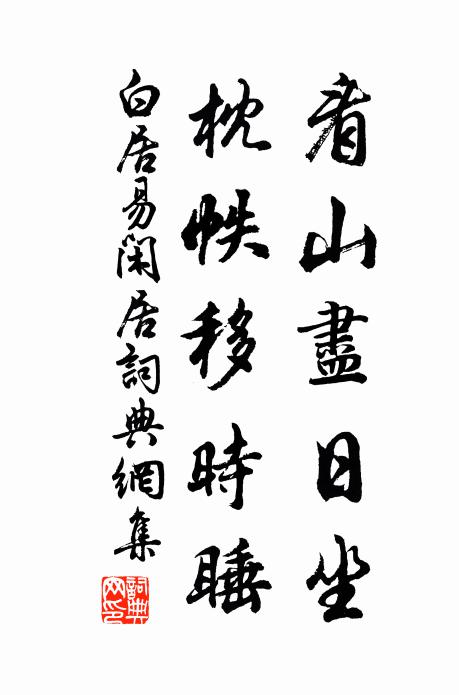 看山盡日坐
枕帙移時睡
白居易閑居詞典網集
詞典網印